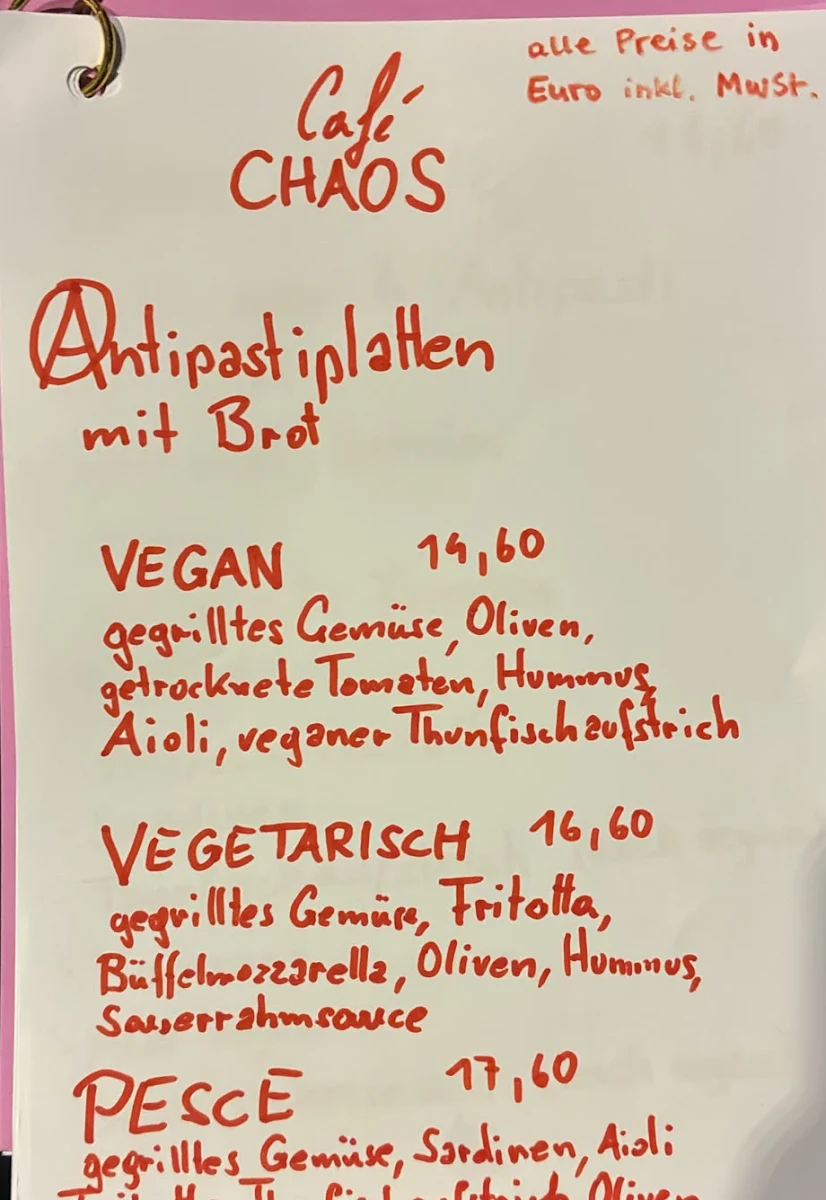 alle Preise in
Euro inkl. MwSt.
Café
CHAOS
Antipastiplatten
mit Brot
VEGAN 14,60
gegrilltes Gemüse, Oliven,
getrocknete Tomaten, Hummus,
Aioli, veganer Thunfischaufstrich
VEGETARISCH 16,60
gegrilltes Gemüse, Fritotta,
Büffelmozzarella, Oliven, Hummus,
Sauerrahmsauce
PESCE 17,60
gegrilltes Gemüse, Sardinen, Aioli
Oliven